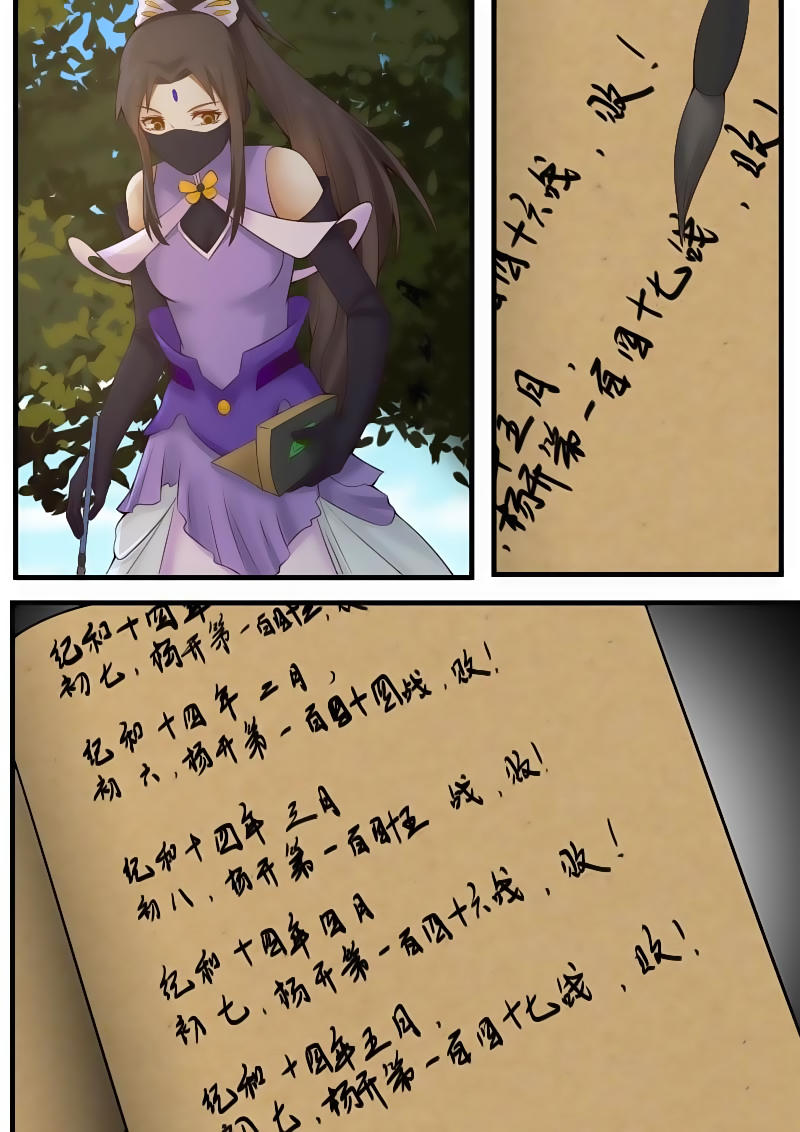 四十六战，败！
十五月，
，杨开第一百四十七战，败！
纪和十四年
初七，杨开第一百四十三，败
纪和十四年二月，
初六，杨开第一百四十四战，败！
纪和十四年三月
初八，杨开第一百四十五战，败！
纪和十四年四月
初七，杨开第一百四十六战，败！
纪和十四年五月，
初七，杨开第一百四十七战，败！